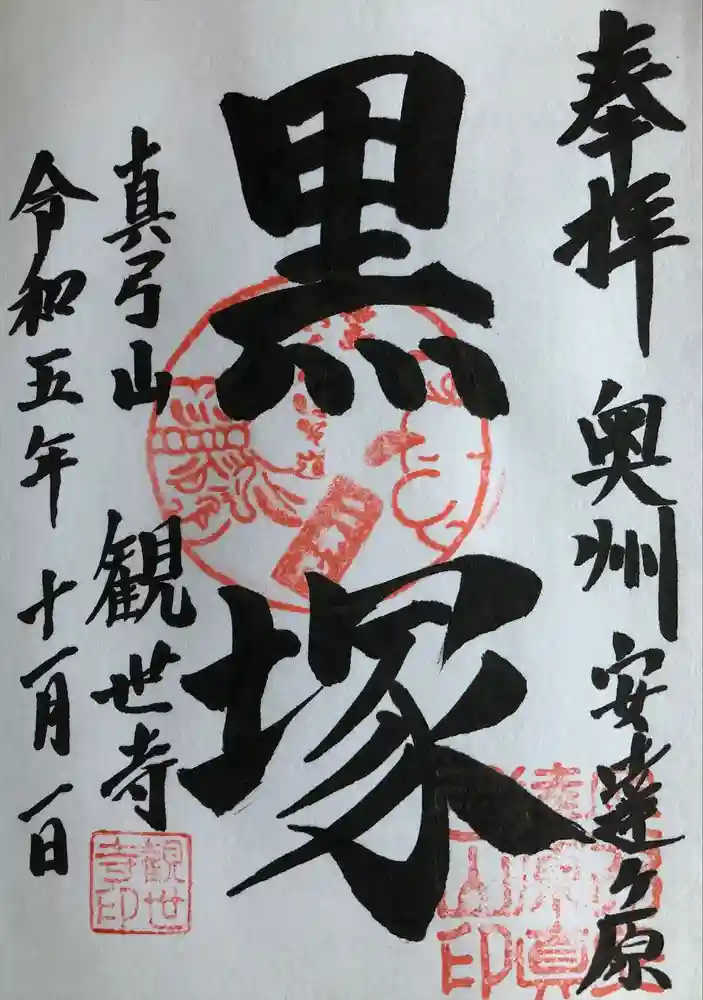 奉拝 奥州 安達ヶ原
黒塚
真弓山 観世寺
令和五年 十一月一日
観世
寺印